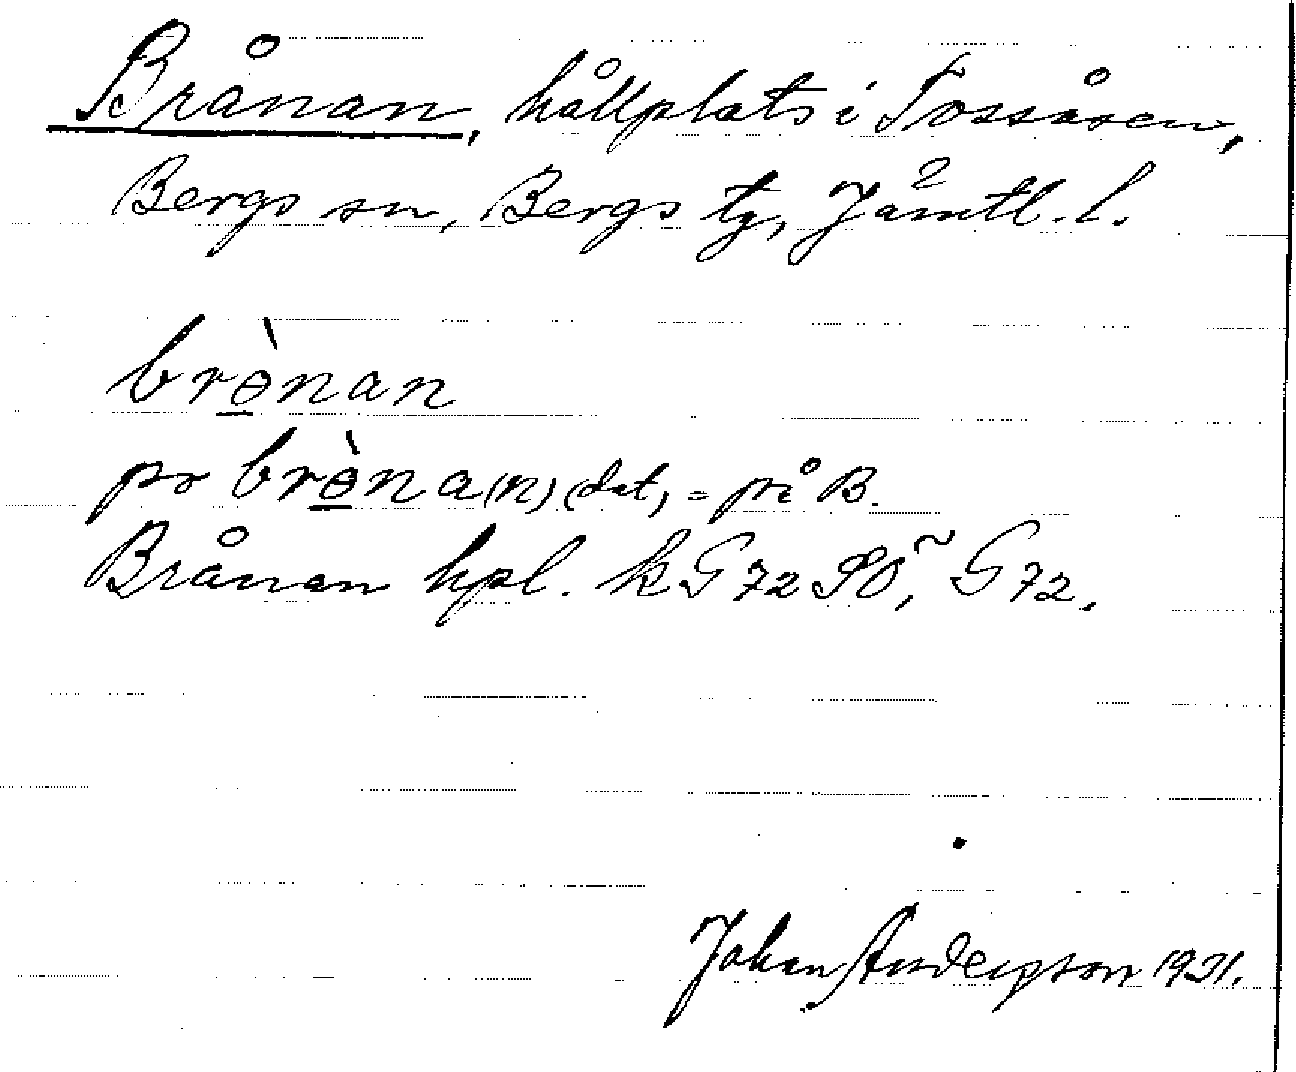 Brånan, hållplats i Tossåsen,
Bergs sn, Bergs tg, Jämtl. l.
brɵ̠̀nan
po brɵ̠̀na(n) (dat) = på B.
Brånan hpl. k G 72 SO, ~ G 72.
Johan Anderson